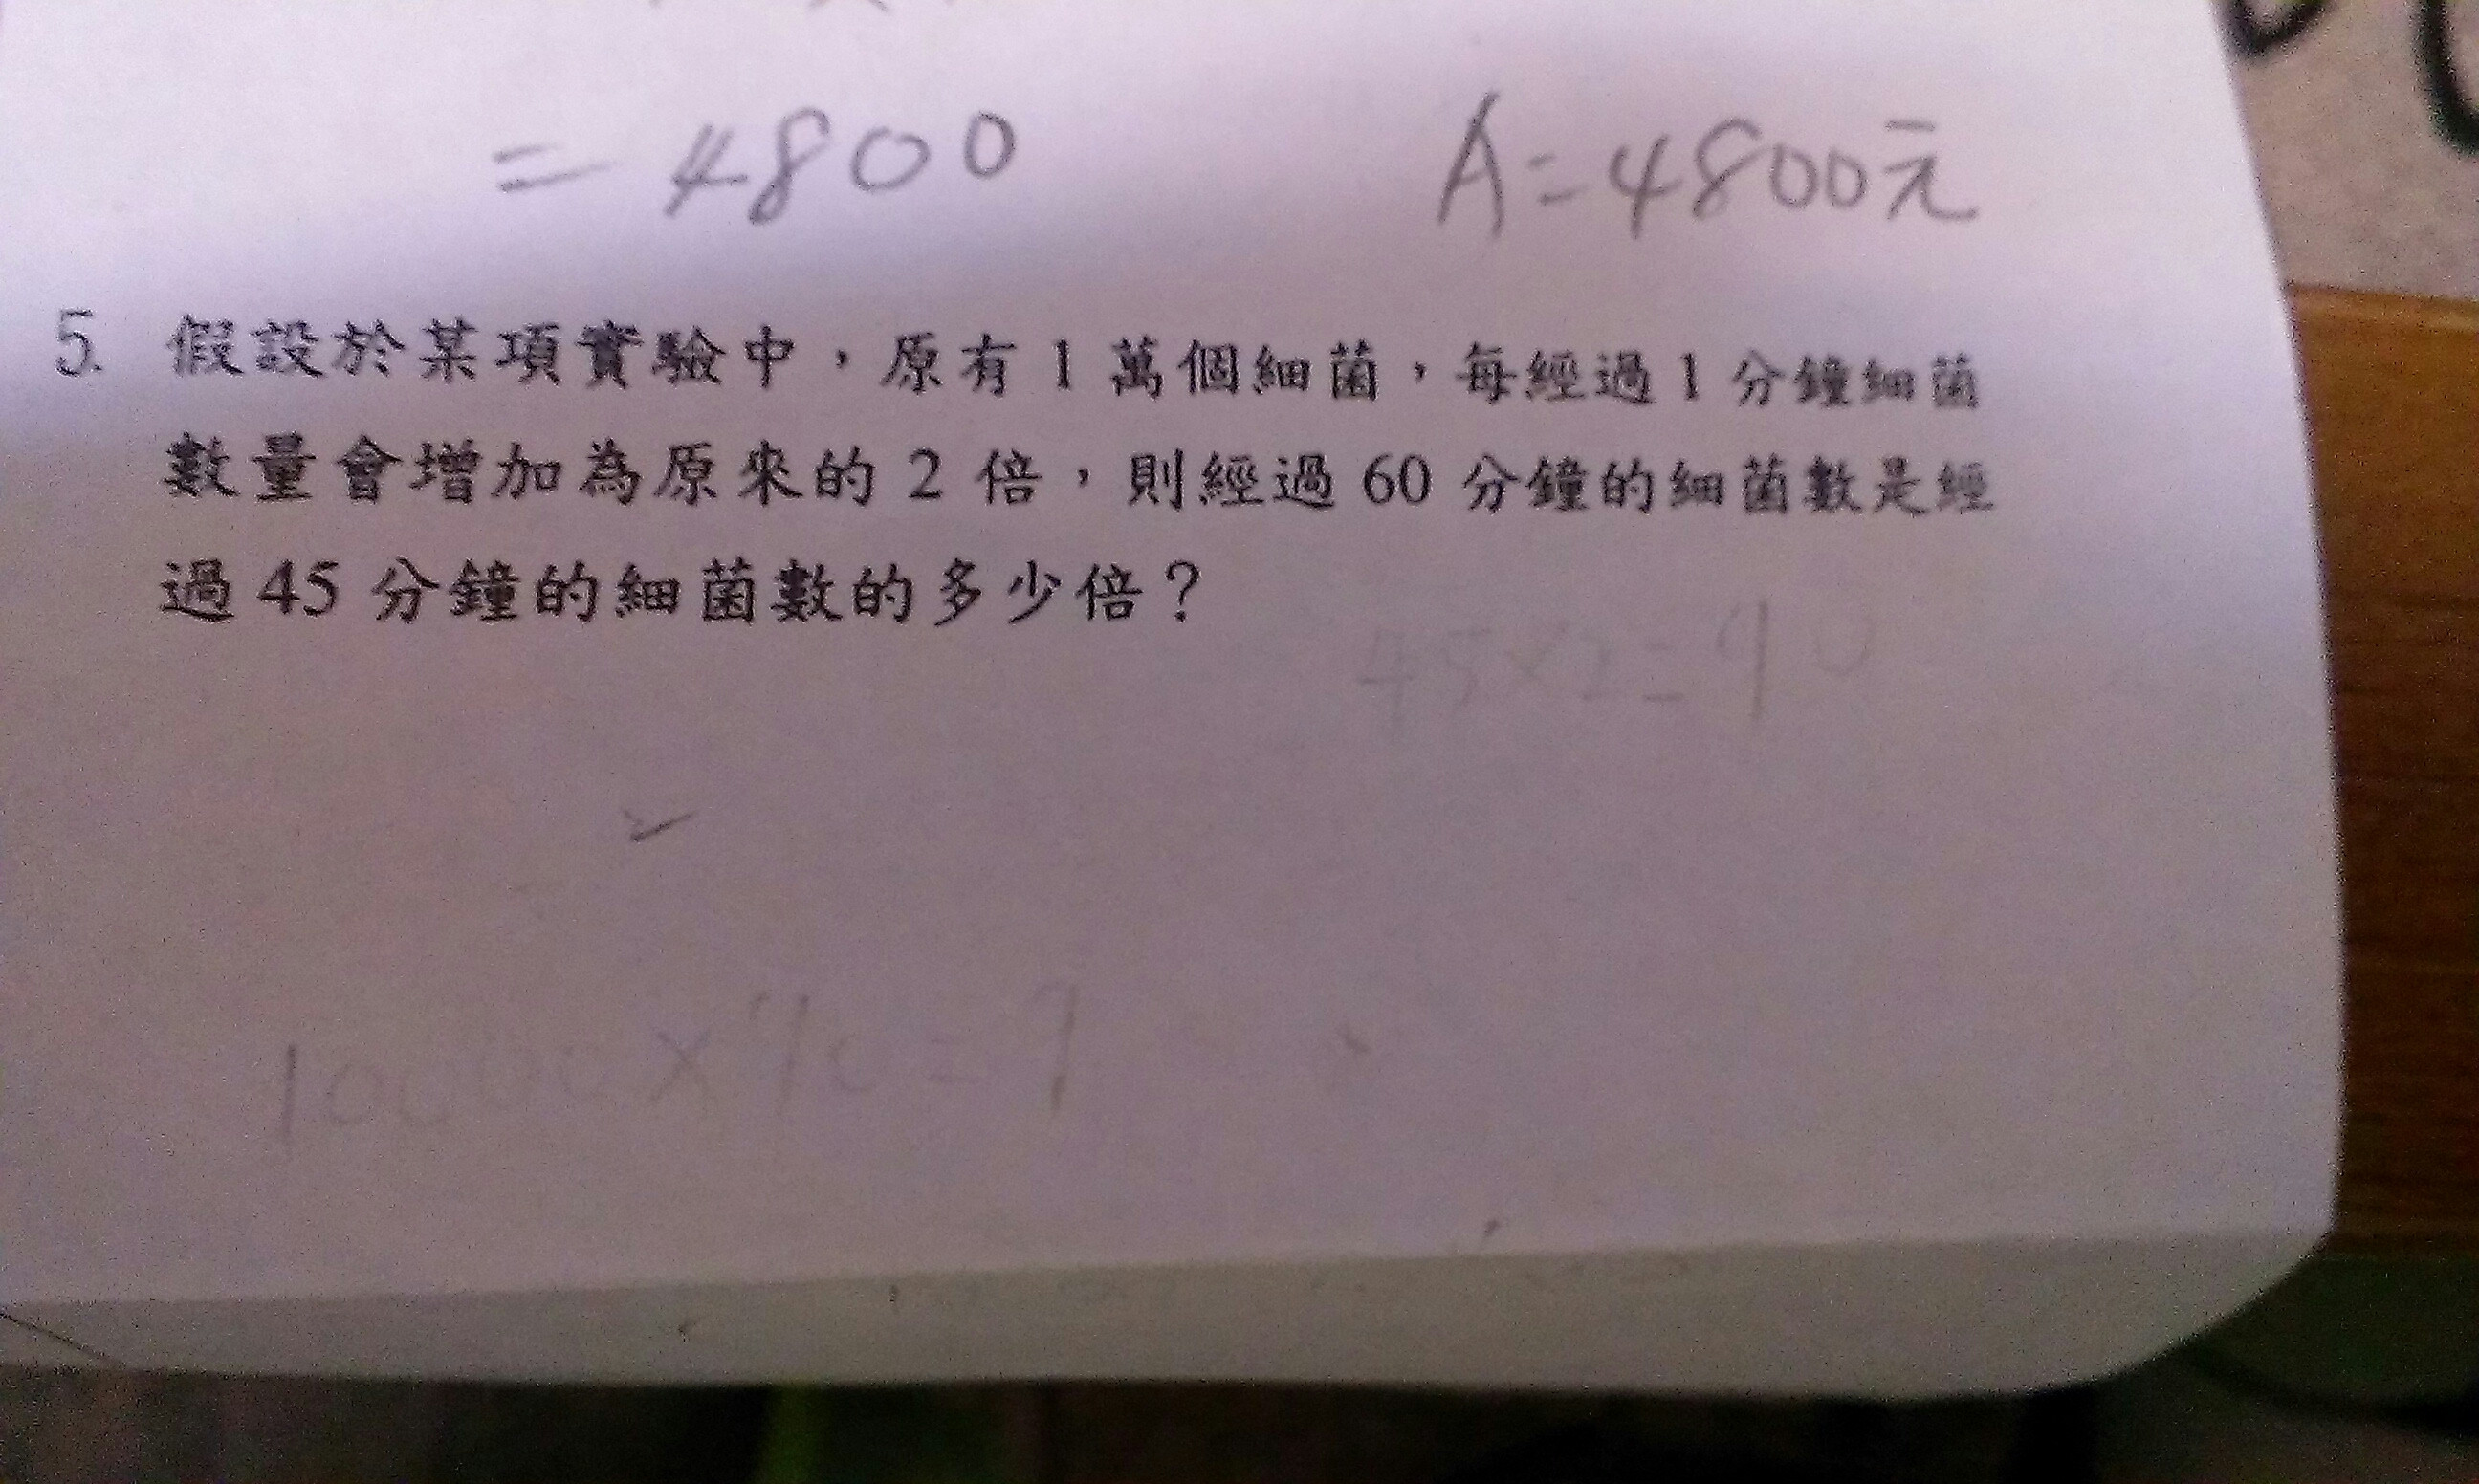 = 4800 A=4800元
5. 假設於某項實驗中，原有 1 萬個細菌，每經過 1 分鐘細菌
數量會增加為原來的 2 倍，則經過 60 分鐘的細菌數是經
過 45 分鐘的細菌數的多少倍？
45×2=90
10000×90=9